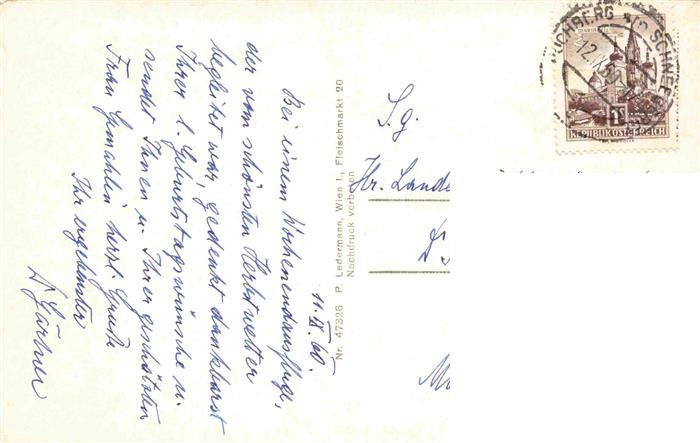 11. IX. 60.
Bei einem Wochenendausflug,
der vom schönsten Herbstwetter
begleitet war, gedenkt dankbarst
Ihrer l. Geburtstagswünsche u.
sendet Ihnen u. Ihrer geschätzten
Frau Gemahlin herzl. Grüße
Ihr ergebenster
Dr Gärtner
Nr. 47326 P. Ledermann, Wien I., Fleischmarkt 20
Nachdruck verboten
S.g.
Hr. Lande
D
M
SCHNEEB
12.
1
REPUBLIK ÖSTERREICH